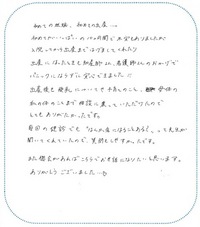 初めての妊娠、初めての出産…。
初めてがいっぱいの10ヶ月間で不安もありましたが
と院ってから出産まではげましてくれたり
出産にはたくさん助産師さん、看護師さんのおかげで
パニックにならずに安心できました!!
出産後も母乳についてや子育てのこと、母体の
私の体のことまで相談に乗っていただけたので
とてもありがたかったです。
毎回の健診でも"なんか気になることある？"って先生が
聞いてくれていたので、質問もしやすかったです。
また機会があればこちらでお世話になりたいと思います。
ありがとうございました